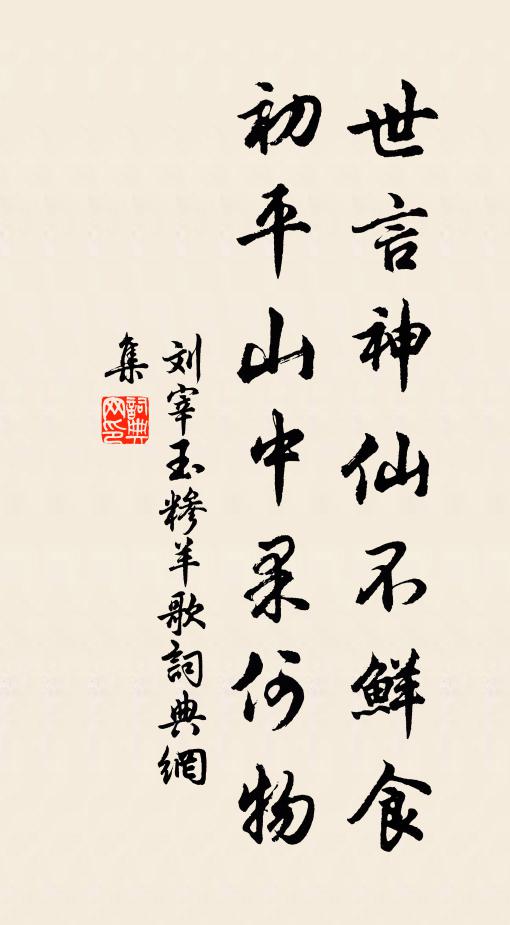 世言神仙不鮮食
初平山中果何物
刘宰玉糁羊歌詞典網
集
詞典网印